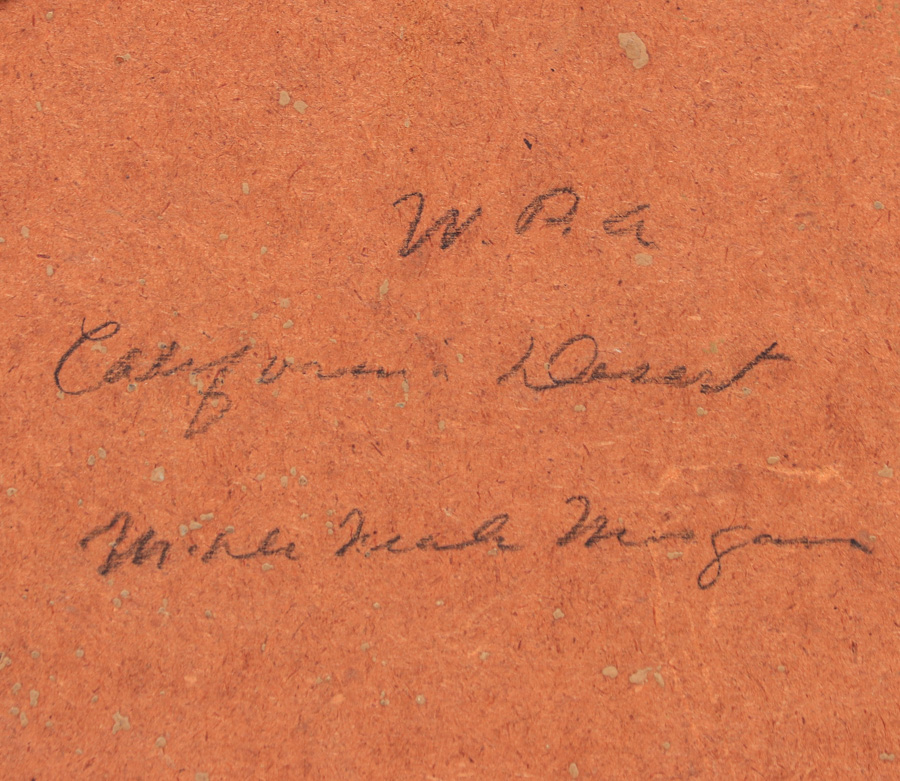 W. P. A
California Desert
M. De Neale Morgan